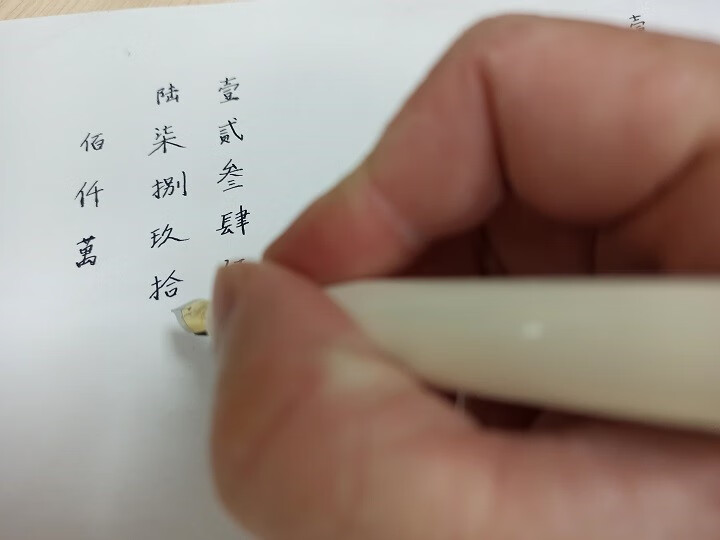 壹貳叁肆
陸柒捌玖拾
佰仟萬
壹